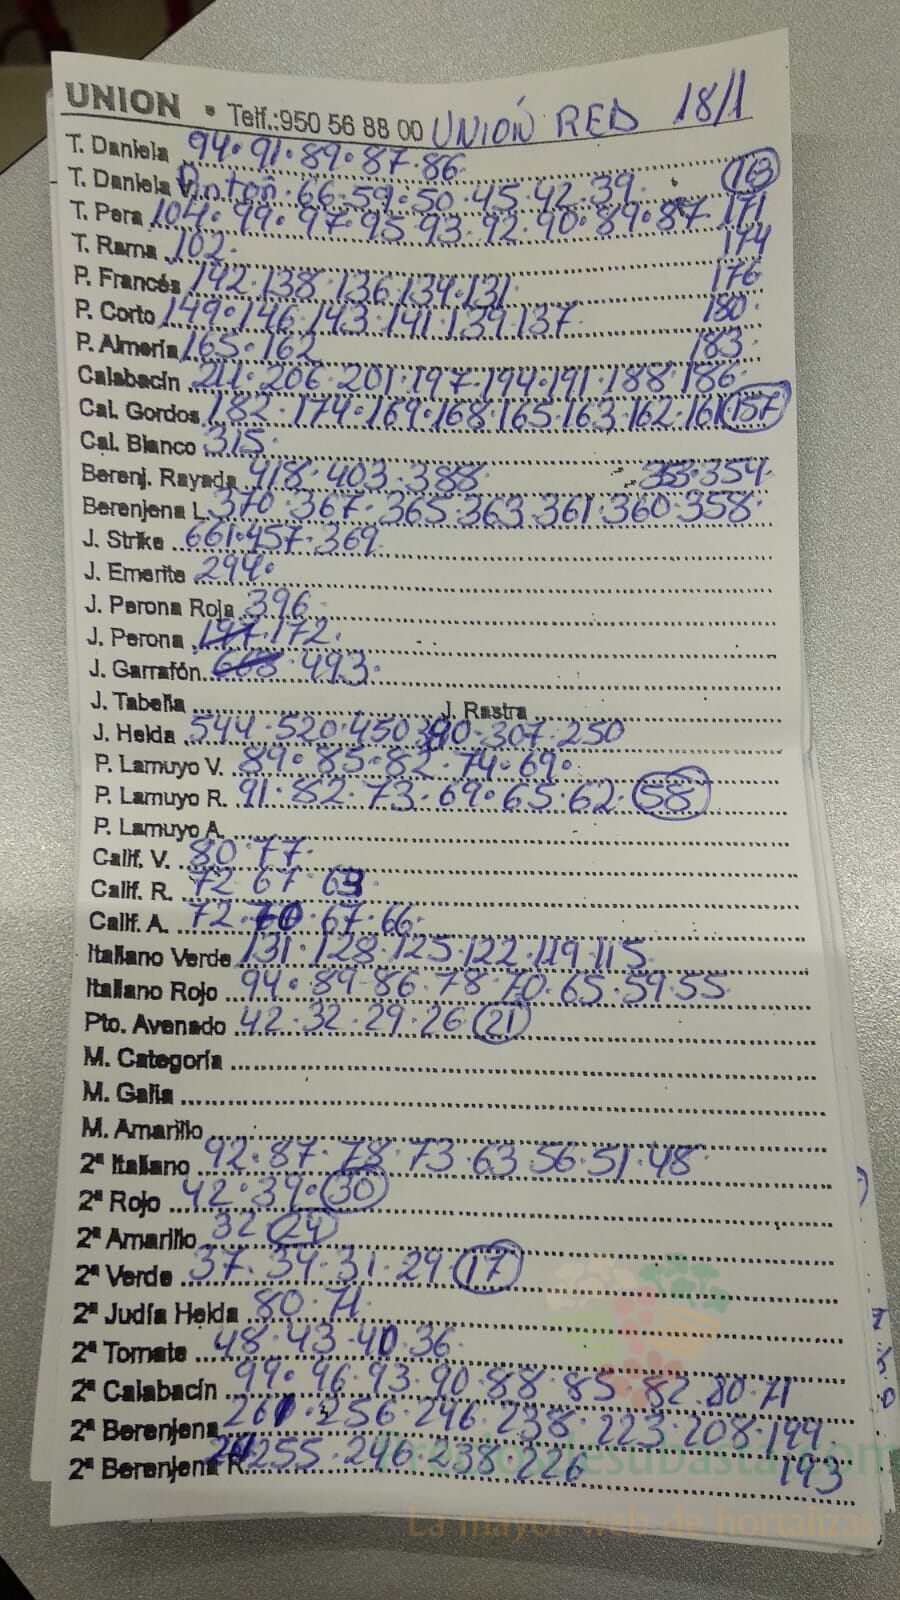 UNION • Telf.:950 56 88 00 UNIÓN RED 18/1
T. Daniela 94·91·89·87·86
T. Daniela Pinton·66·59·50·45·42·39· 163
T. Pera 104·99·97·95·93·92·90·89·87 171
T. Rama 102· 174
P. Francés 142·138·136·134·131 176
P. Corto 149·146·143·141·139·137 180·
P. Almería 165·162 183·
Calabacín 211·206·201·197·194·191·188·186·
Cal. Gordos 182·174·169·168·165·163·162·161 157
Cal. Blanco 315·
Berenj. Rayada 418·403·388 353·354
Berenjena L. 370·367·365·363·361·360·358·
J. Strike 661·457·369
J. Emerite 294·
J. Perona Roja 396·
J. Perona 197·172·
J. Garrafón 493·
J. Tabeña J. Rastra
J. Helda 544·520·450 390·307·250
P. Lamuyo V. 89·85·82·74·69·
P. Lamuyo R. 91·82·73·69·65·62·58
P. Lamuyo A.
Calif. V. 80·77·
Calif. R. 72·67·63
Calif. A. 72·70·67·66·
Italiano Verde 131·128·125·122·119·115
Italiano Rojo 94·89·86·78·70·65·59·55
Pto. Avenado 42·32·29·26 21
M. Categoría
M. Galia
M. Amarillo
2ª Italiano 92·87·78·73·63·56·51·48·
2ª Rojo 42·39·30
2ª Amarillo 32 24
2ª Verde 37·34·31·29 17
2ª Judía Helda 80·71
2ª Tomate 48·43·40·36
2ª Calabacín 99·96·93·90·88·85·82·80·71
2ª Berenjena 261·256·246·238·223·208·199
2ª Berenjena R. 255·246·238·226 193
Preciosdesubasta.com
La mayor web de hortalizas